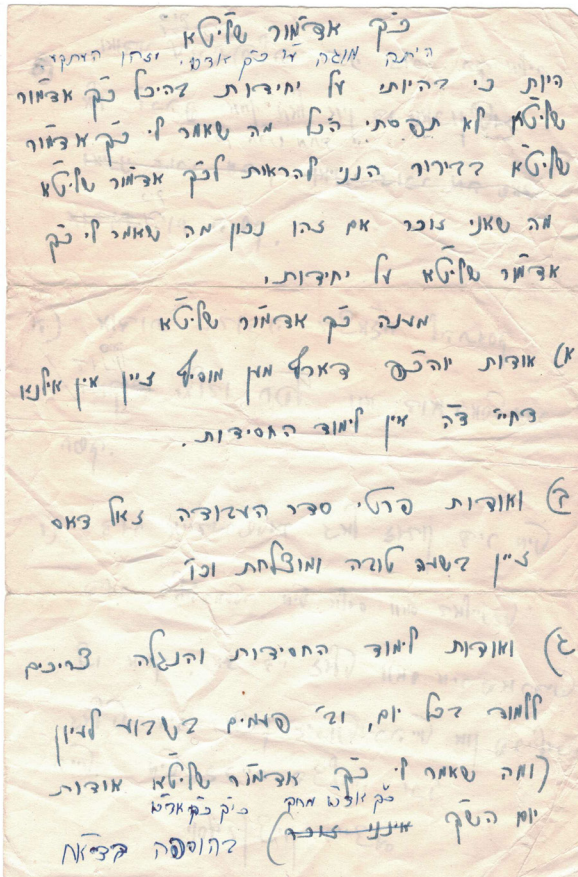 כ״ק אדמו״ר שליט״א
היתה מוגה ע״י כ״ק אדמו״ר וזהו העתקה
היות כי בהיותי על יחידות בהיכל כ״ק אדמו״ר
שליט״א לא תפסתי הכל מה שאמר לי כ״ק אדמו״ר
שליט״א בבירור הנני להראות לכ״ק אדמו״ר שליט״א
מה שאני זוכר אם זהו נכון מה שאמר לי כ״ק
אדמו״ר שליט״א על יחידותי.
מענה כ״ק אדמו״ר שליט״א
א) אודות יוהכ״פ דארף מען מוסיף זיין אין אילנא
דחיי ד״ה אין לימוד החסידות.
ב) ואודות פרטי סדר העבודה זאל דאס
זיין בשעה טובה ומוצלחת וכו׳
ג) ואודות לימוד החסידות והנגלה צריכים
ללמוד בכל יום, וב׳ פעמים בשבוע לעיין
(ומה שאמר לי כ״ק אדמו״ר שליט״א אודות
כ״ק אד״ש מחק
יום הש״ק אינני זוכר)
בהוספה